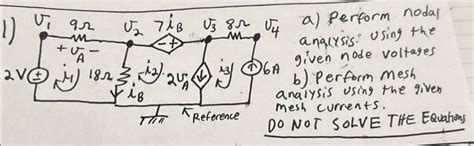 1)
V1 9Ω V2 7iB V3 8Ω V4
+ VA -
- +
2V + - i1 18Ω i2 2VA i3 6A
iB
Reference
a) Perform nodal
analysis using the
given node voltages
b) Perform mesh
analysis using the given
mesh currents.
DO NOT SOLVE THE Equations